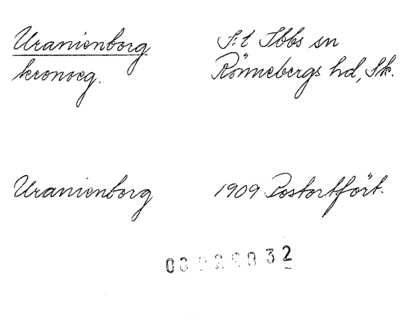 Uranienborg S:t Ibbs sn
kronoeg. Rönnebergs hd, Sk.
Uranienborg 1909 Postortfört.